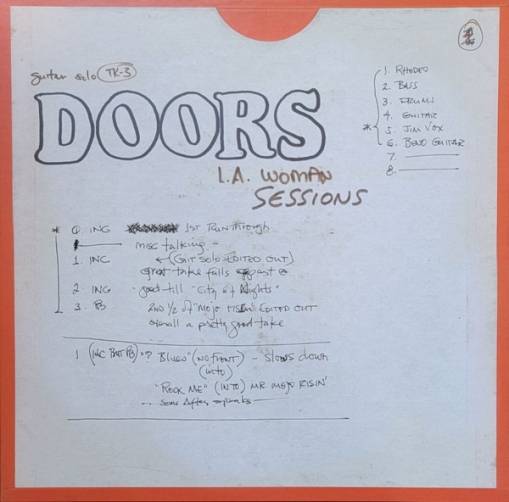 guitar solo TK-3
DOORS
L.A. WOMAN
SESSIONS
* 1. RHODES
2. BASS
3. DRUMS
4. GUITAR
5. JIM VOX
6. BEND GUITAR
7.
8.
* 0 ING 1ST Runthrough
misc talking -
1. INC (GIT SOLO EDITED OUT)
great take falls apart @
2 ING good till "City of Nights"
3. PB 2ND 1/2 of "Mojo risin" EDITED OUT
overall a pretty good take
1 (INC BUT PB) "? Blues" (NO FRONT) - Slows down
(INTO)
"ROCK ME" (INTO) MR MOJO RISIN'
some After